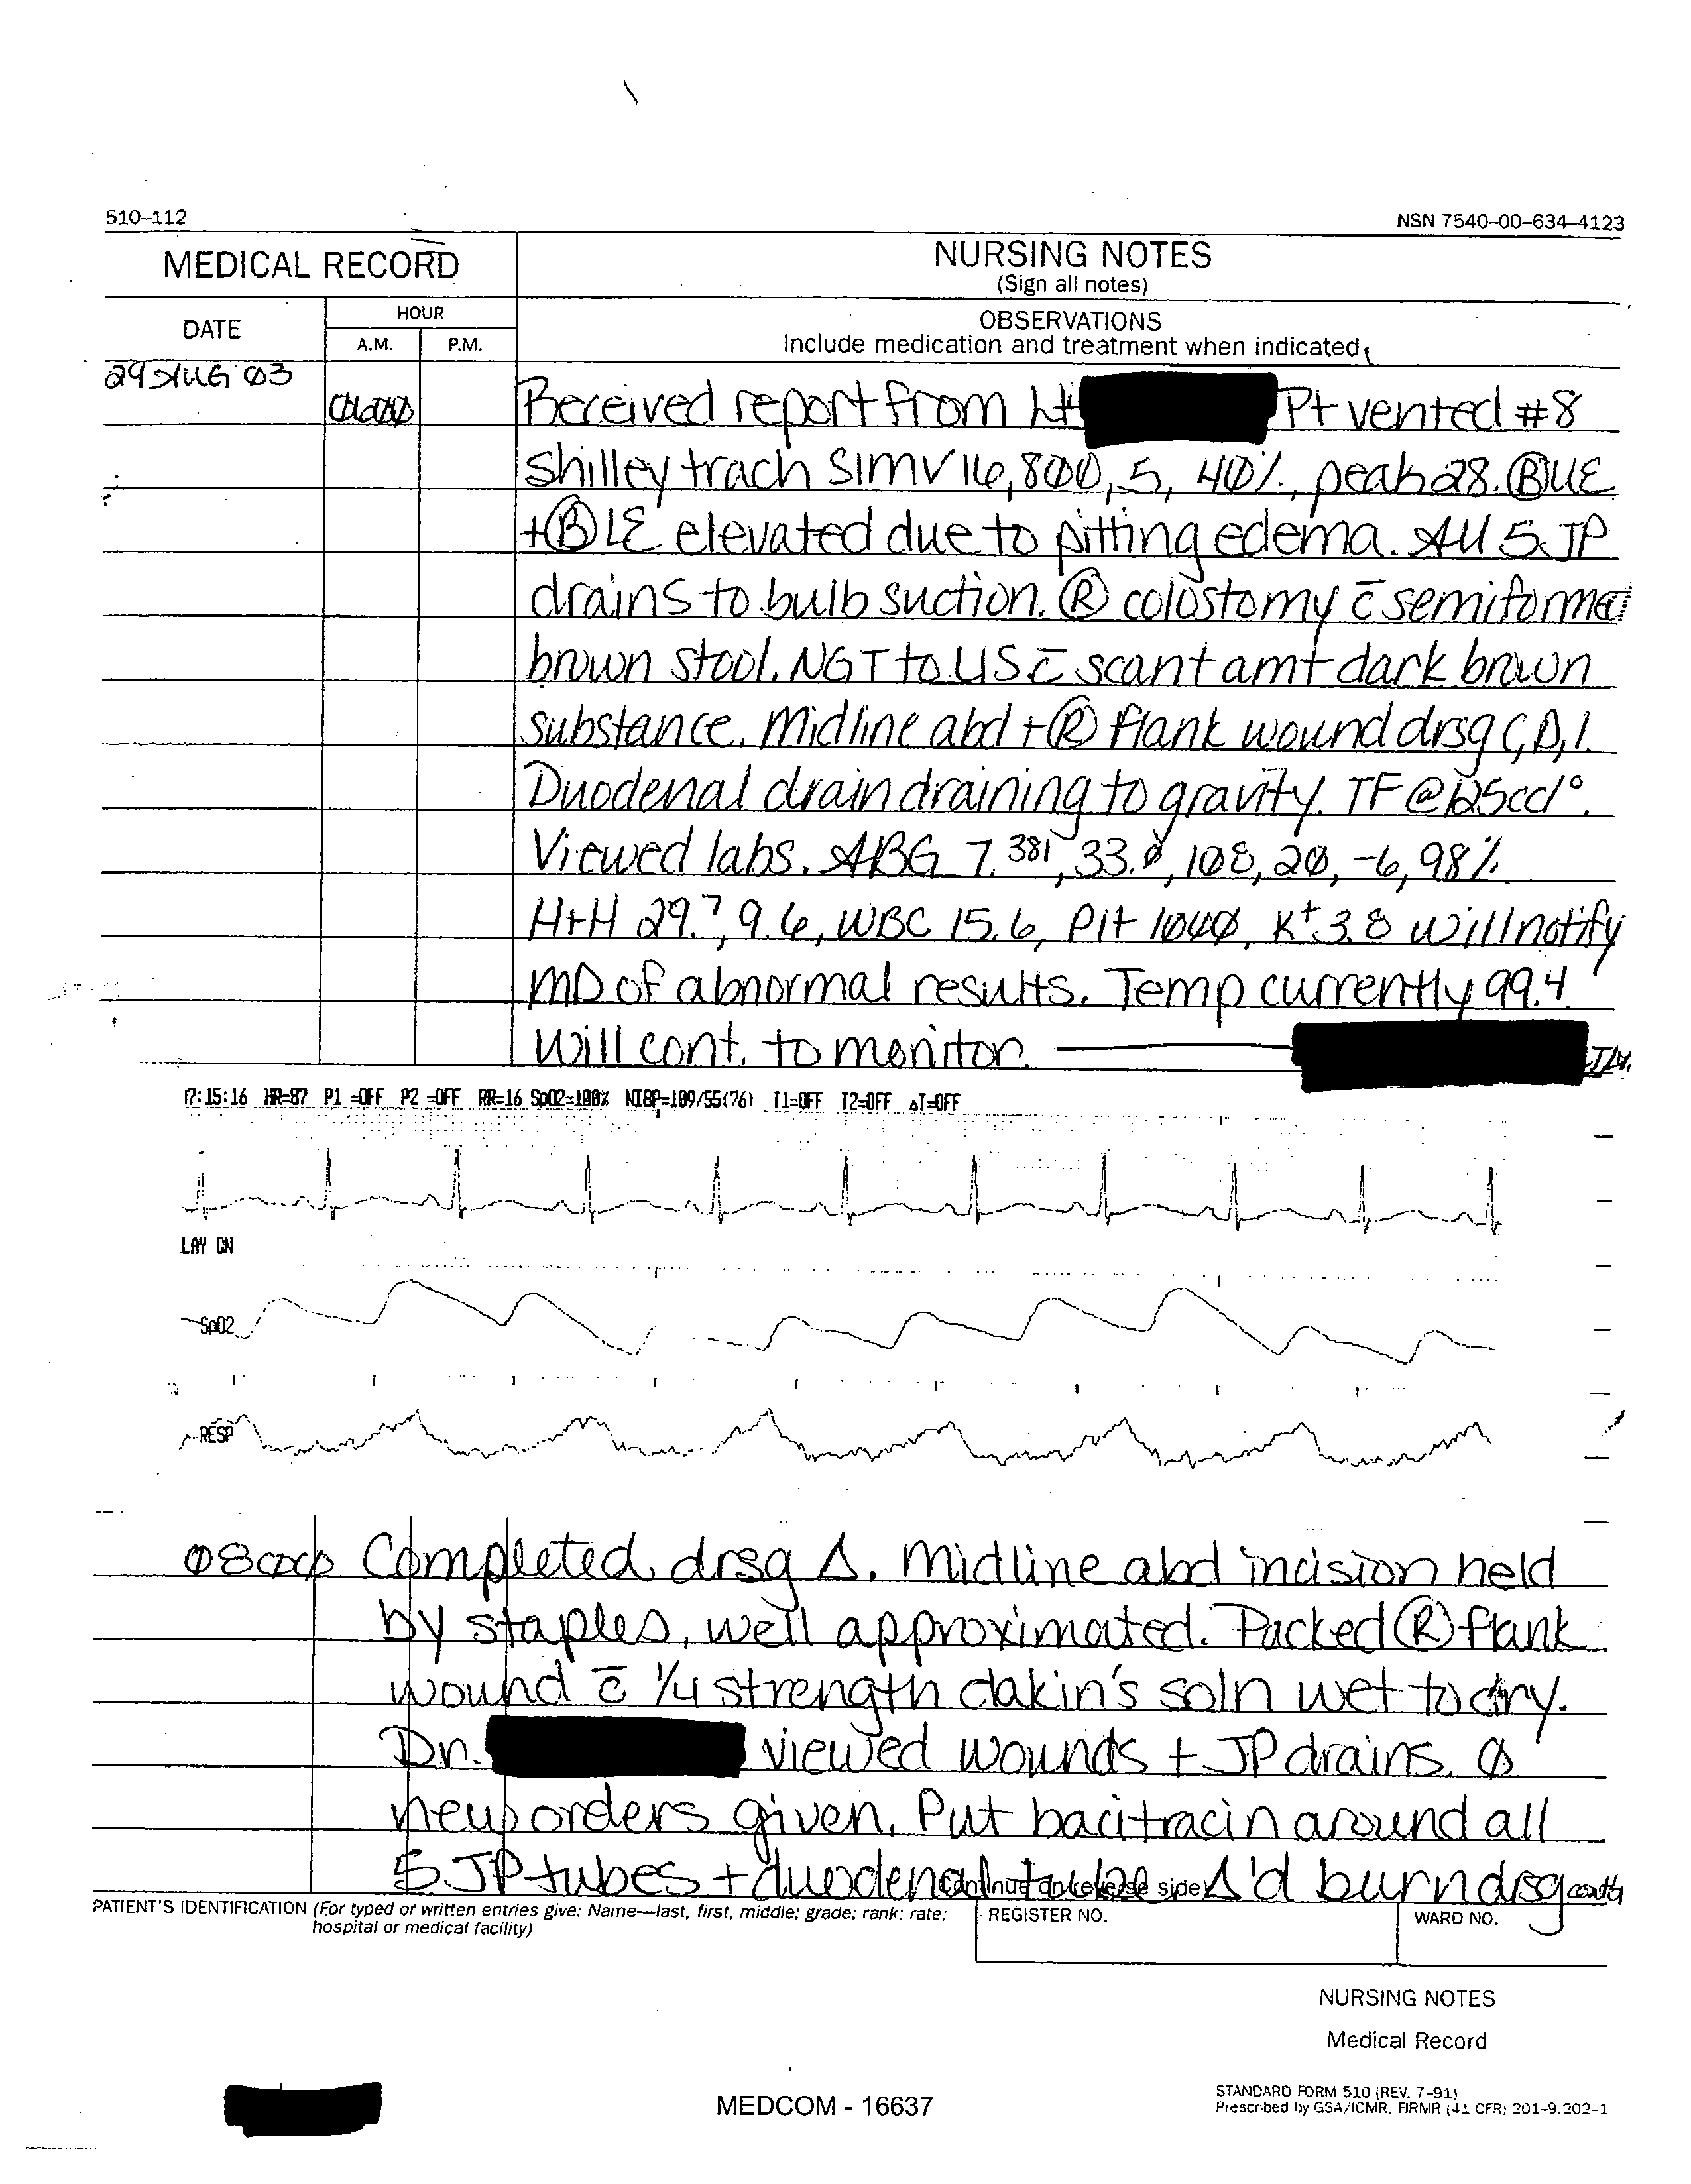 510-112
NSN 7540-00-634-4123
MEDICAL RECORD
NURSING NOTES
(Sign all notes)
DATE
HOUR
A.M.
P.M.
OBSERVATIONS
Include medication and treatment when indicated
29 AUG 03
Received report from Lt Pt vented #8
shilley trach SIMV 16, 800, 5, 40%, peak 28. Ⓑ UE
+ Ⓑ LE elevated due to pitting edema. All 5 JP
drains to bulb suction. Ⓡ colostomy c̄ semiformed
brown stool. NGT to LIS c̄ scant amt dark brown
substance. Midline abd + Ⓡ flank wound drsg C,D,I.
Duodenal drain draining to gravity. TF @ 125cc/°.
Viewed labs. ABG 7.381, 33.0, 108, 20, -6, 98%.
H+H 29.7, 9.6, WBC 15.6, Plt 1040, K+ 3.8 will notify
MD of abnormal results. Temp currently 99.4.
Will cont. to monitor.
17:15:16 HR=87 P1 =OFF P2 =OFF RR=16 SpO2=100% NIBP=109/55(76) T1=OFF T2=OFF ΔT=OFF
SpO2
RESP
0800 Completed drsg Δ. Midline abd incision held
by staples, well approximated. Packed Ⓡ flank
wound c̄ 1/4 strength dakin's soln wet to dry.
Dr. viewed wounds + JP drains. Ø
new orders given. Put bacitracin around all
5 JP tubes + duodenal tube. Δ'd burn drsg
(Continue on reverse side)
PATIENT'S IDENTIFICATION (For typed or written entries give: Name—last, first, middle; grade; rank; rate;
hospital or medical facility)
REGISTER NO.
WARD NO.
NURSING NOTES
Medical Record
MEDCOM - 16637
STANDARD FORM 510 (REV. 7-91)
Prescribed by GSA/ICMR, FIRMR (41 CFR) 201-9.202-1